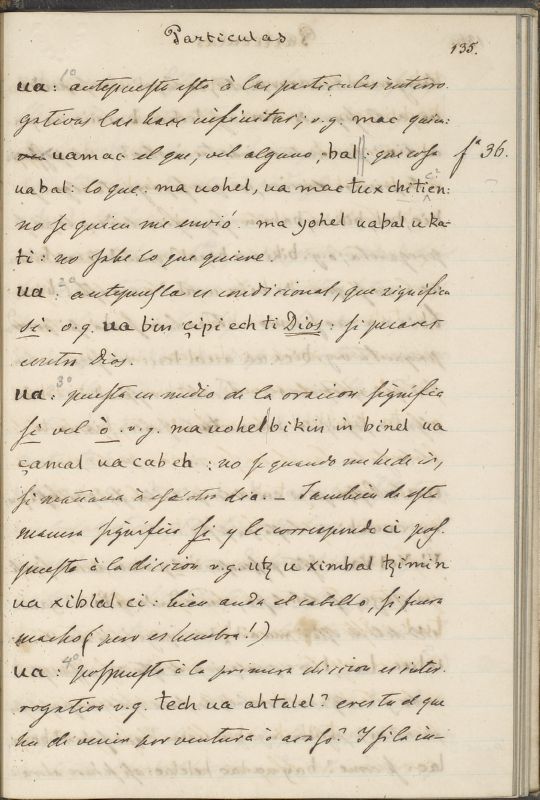 Particulas
135.
ua: 1º antepuesto esto à las particulas interro-
gativas las hace infinitas; v.g. mac quien:
uamac el que, vel alguno, bal: que cosa fª 36.
uabal: lo que: ma uohel, ua mac tux chi ci tien:
no se quien me envió. ma yohel uabal u ka-
ti: no sabe lo que quiere.
ua: 2º antepuesta es condicional, que significa
si. v.g. ua bin çipi ech ti Dios: si pecares
contra Dios.
ua: 3º puesta en medio de la oracion significa
si vel ò. v.g. ma uohel bikin in binel ua
çamal ua cabeh: no se quando me he de ir,
si mañana à esotro dia. Tambien de esta
manera significa si y le corresponde ci pos-
puesto à la diccion v.g. utz u ximbal tzimin
ua xiblal ci: bien anda el caballo, si fuera
macho (pero es hembra!)
ua: 4º pospuesto à la primera diccion es inter-
rogativa v.g. tech ua ahtalel? eres tu el que
ha de venir por ventura ò acaso? Y si la in-